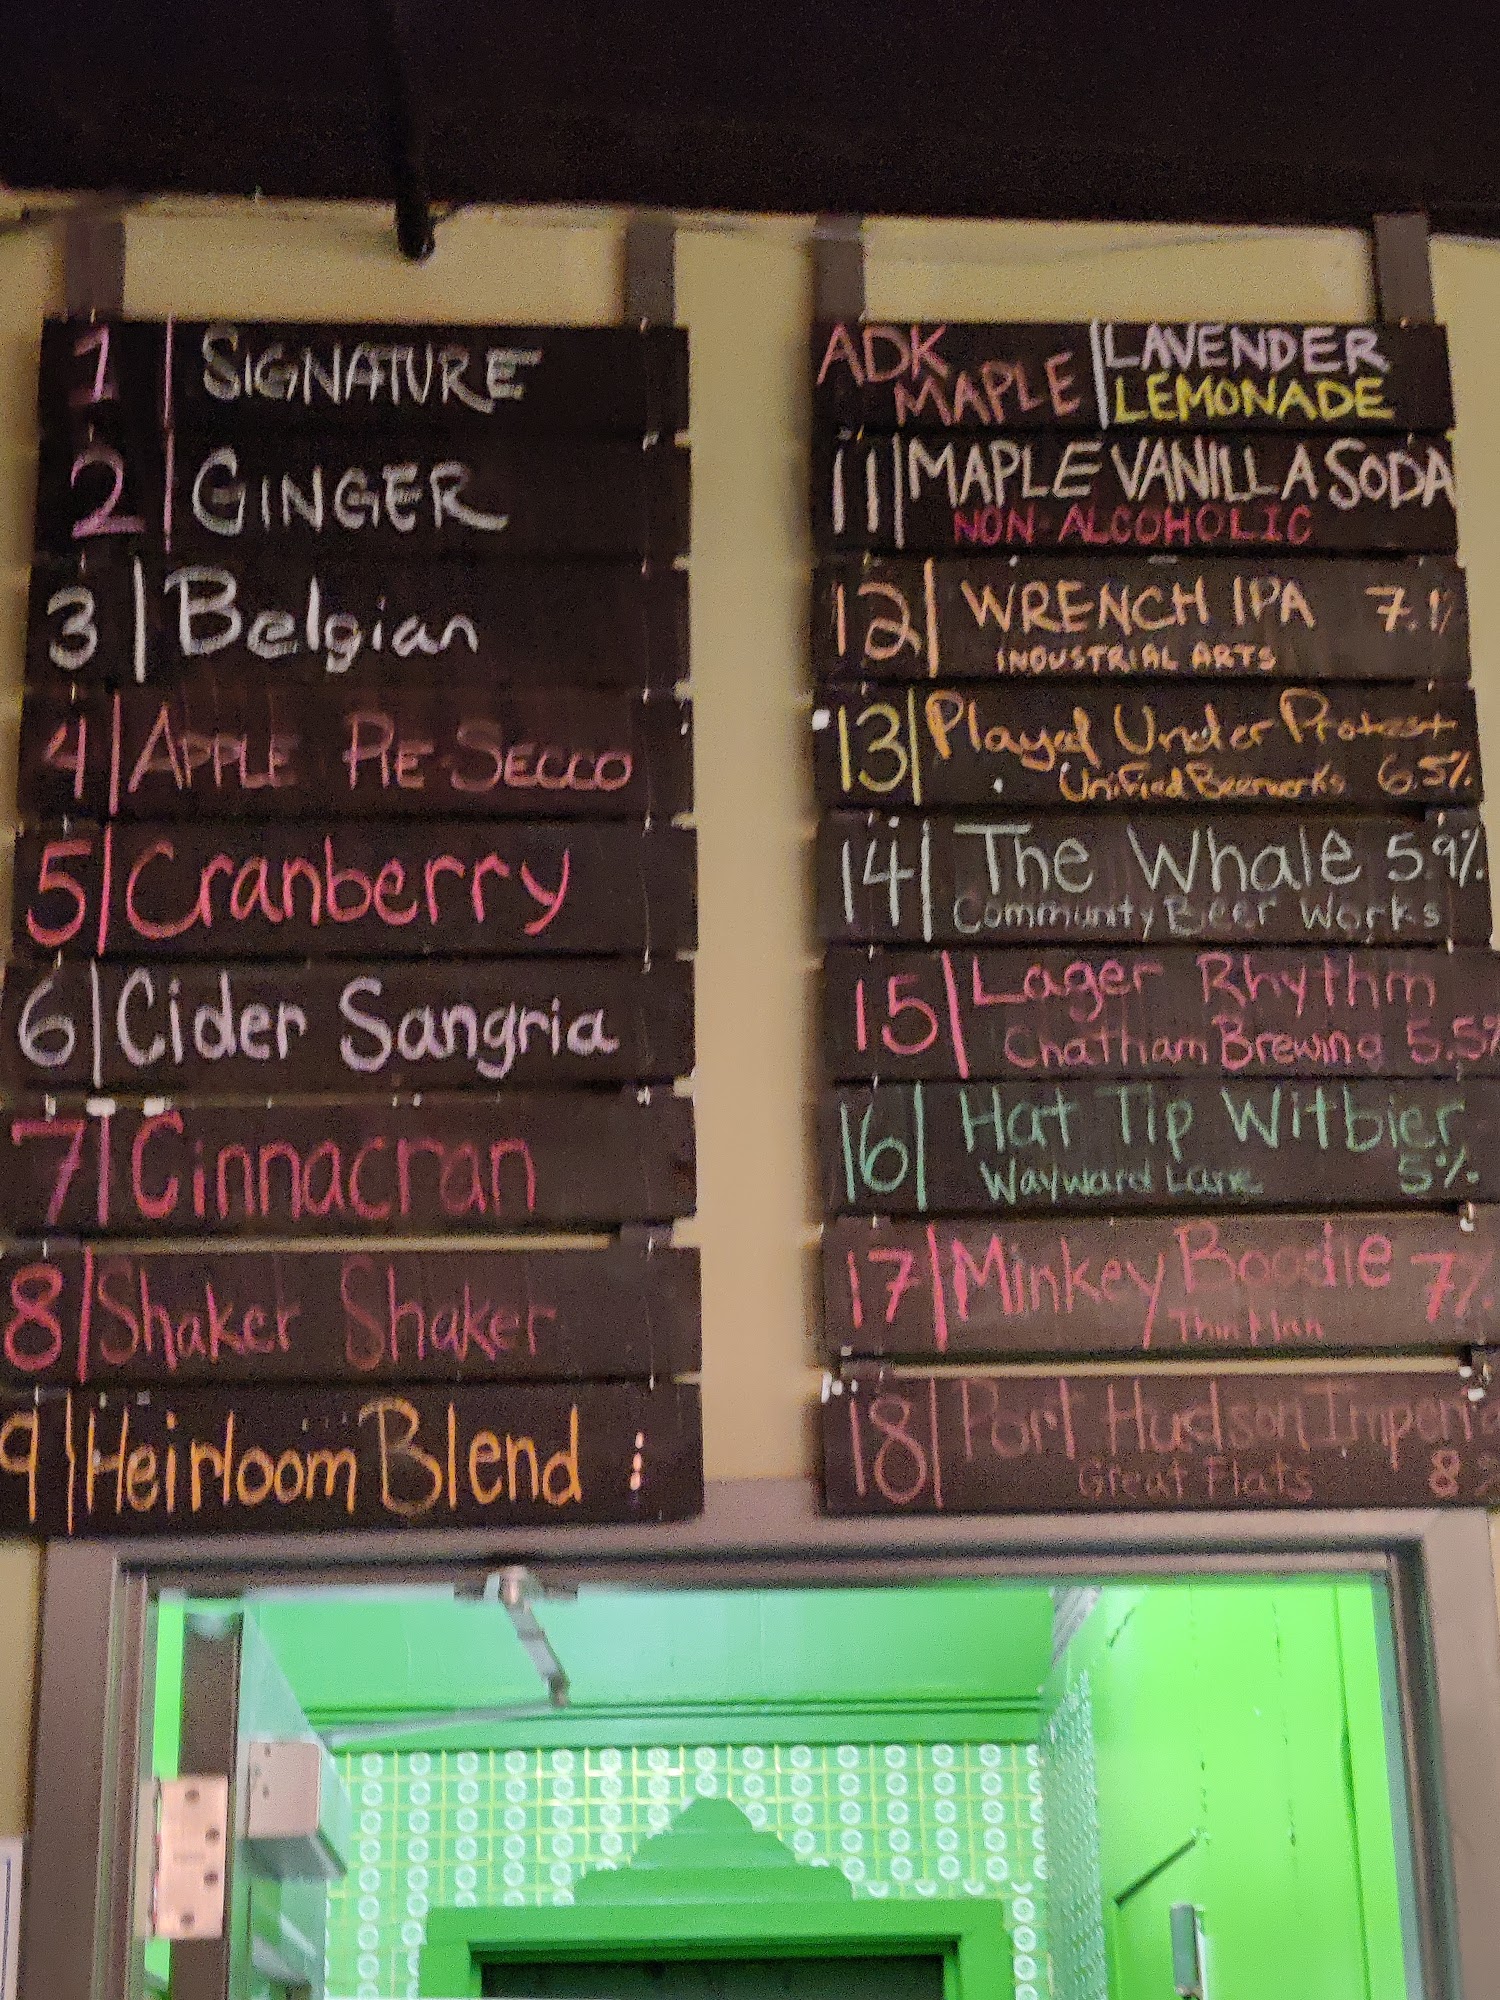 1 SIGNATURE
2 GINGER
3 Belgian
4 APPLE PIE-SECCO
5 Cranberry
6 Cider Sangria
7 Cinnacran
8 Shaker Shaker
9 Heirloom Blend
ADK MAPLE
LAVENDER
LEMONADE
11 MAPLE VANILLA SODA
NON-ALCOHOLIC
12 WRENCH IPA 7.1%
INDUSTRIAL ARTS
13 Played Under Protest
Unified Beerworks 6.5%
14 The Whale 5.9%
Community Beer Works
15 Lager Rhythm
Chatham Brewing 5.5%
16 Hat Tip Witbier
Wayward Lane 5%
17 Minkey Boodle 7%
Thin Man
18 Port Hudson Imperia
Great Flats 8%